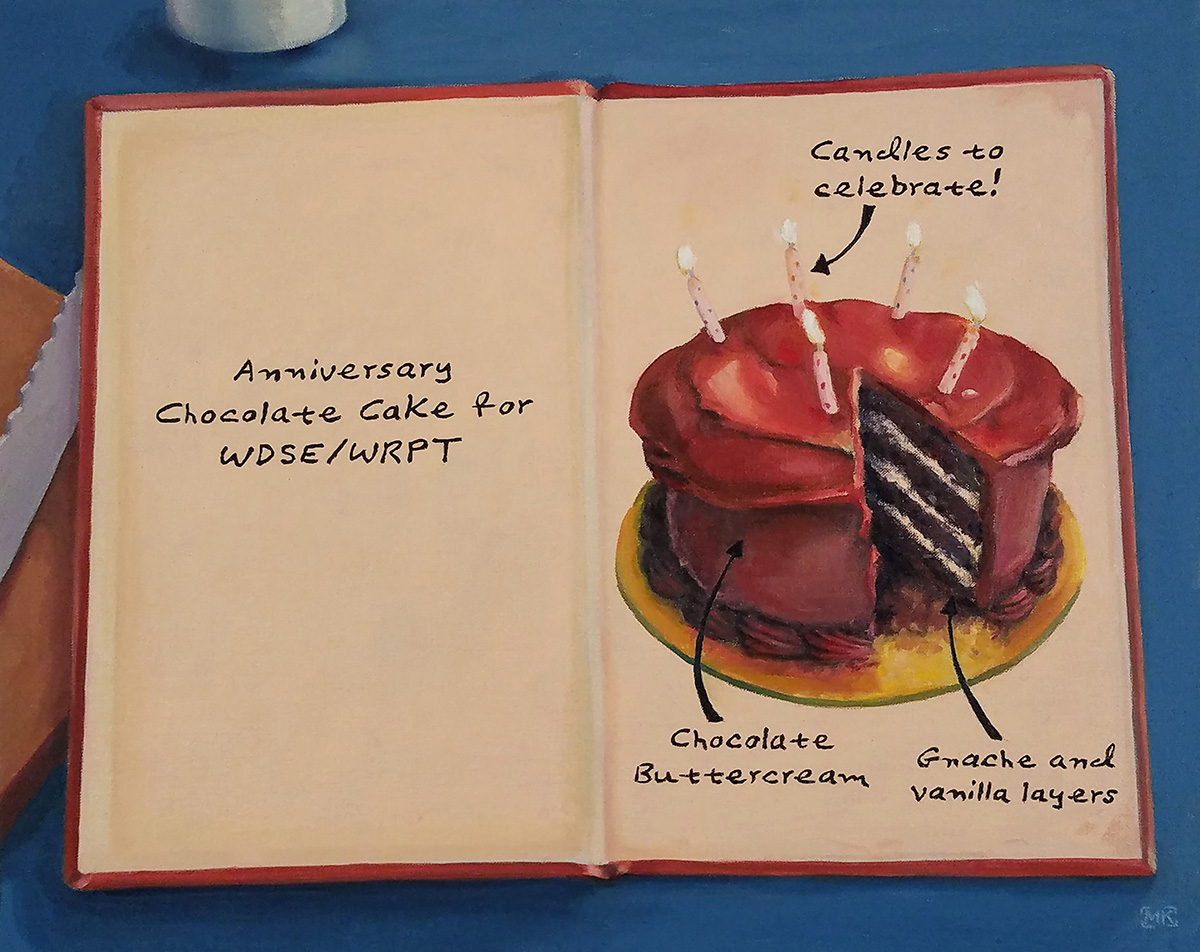 Anniversary
Chocolate Cake for
WDSE/WRPT
Candles to
celebrate!
Chocolate
Buttercream
Gnache and
vanilla layers
MK